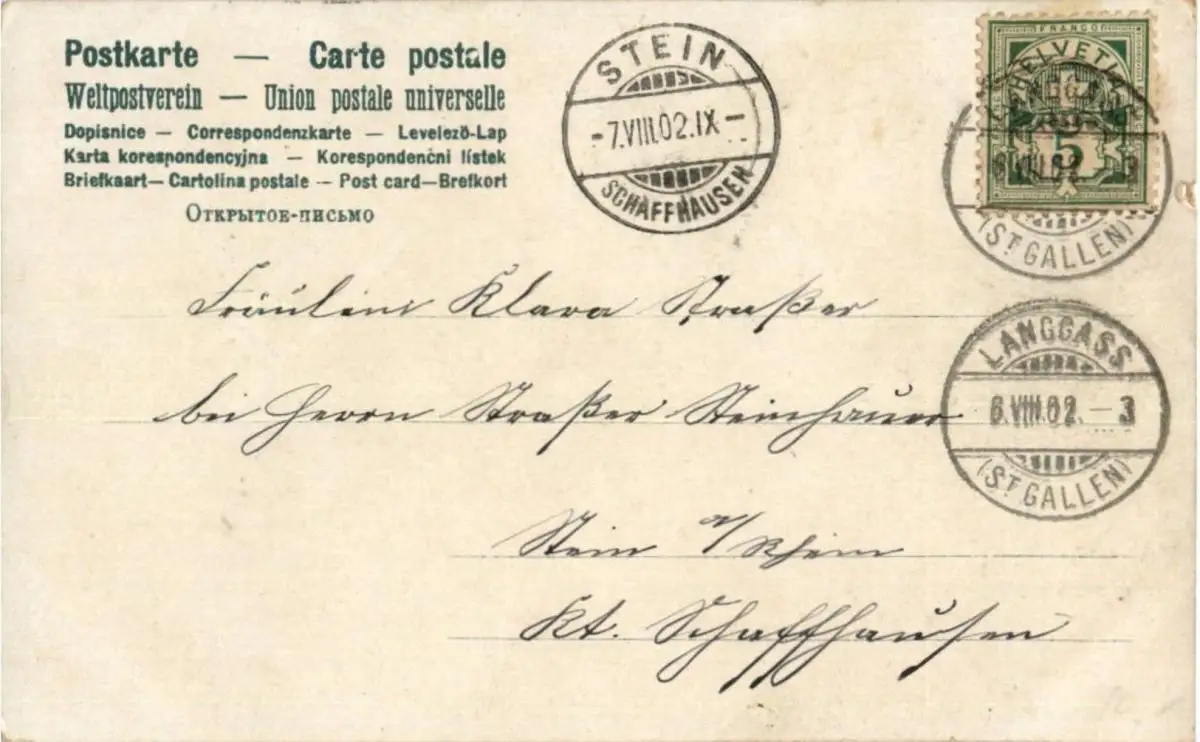 Postkarte — Carte postale
Weltpostverein — Union postale universelle
Dopisnice — Correspondenzkarte — Levelező-Lap
Karta korespondencyjna — Korespondenční lístek
Briefkaart — Cartolina postale — Post card — Brefkort
Открытое-письмо
STEIN
-7.VIII.02.IX-
SCHAFFHAUSEN
FRANCO
HELVETIA
5
6.VIII.02.-3
(ST. GALLEN)
Fräulein Klara Straßer
bei Herrn Straßer Steinhauer
LANGGASS
6.VIII.02.-3
(ST. GALLEN)
Stein a/Rhein
Kt. Schaffhausen